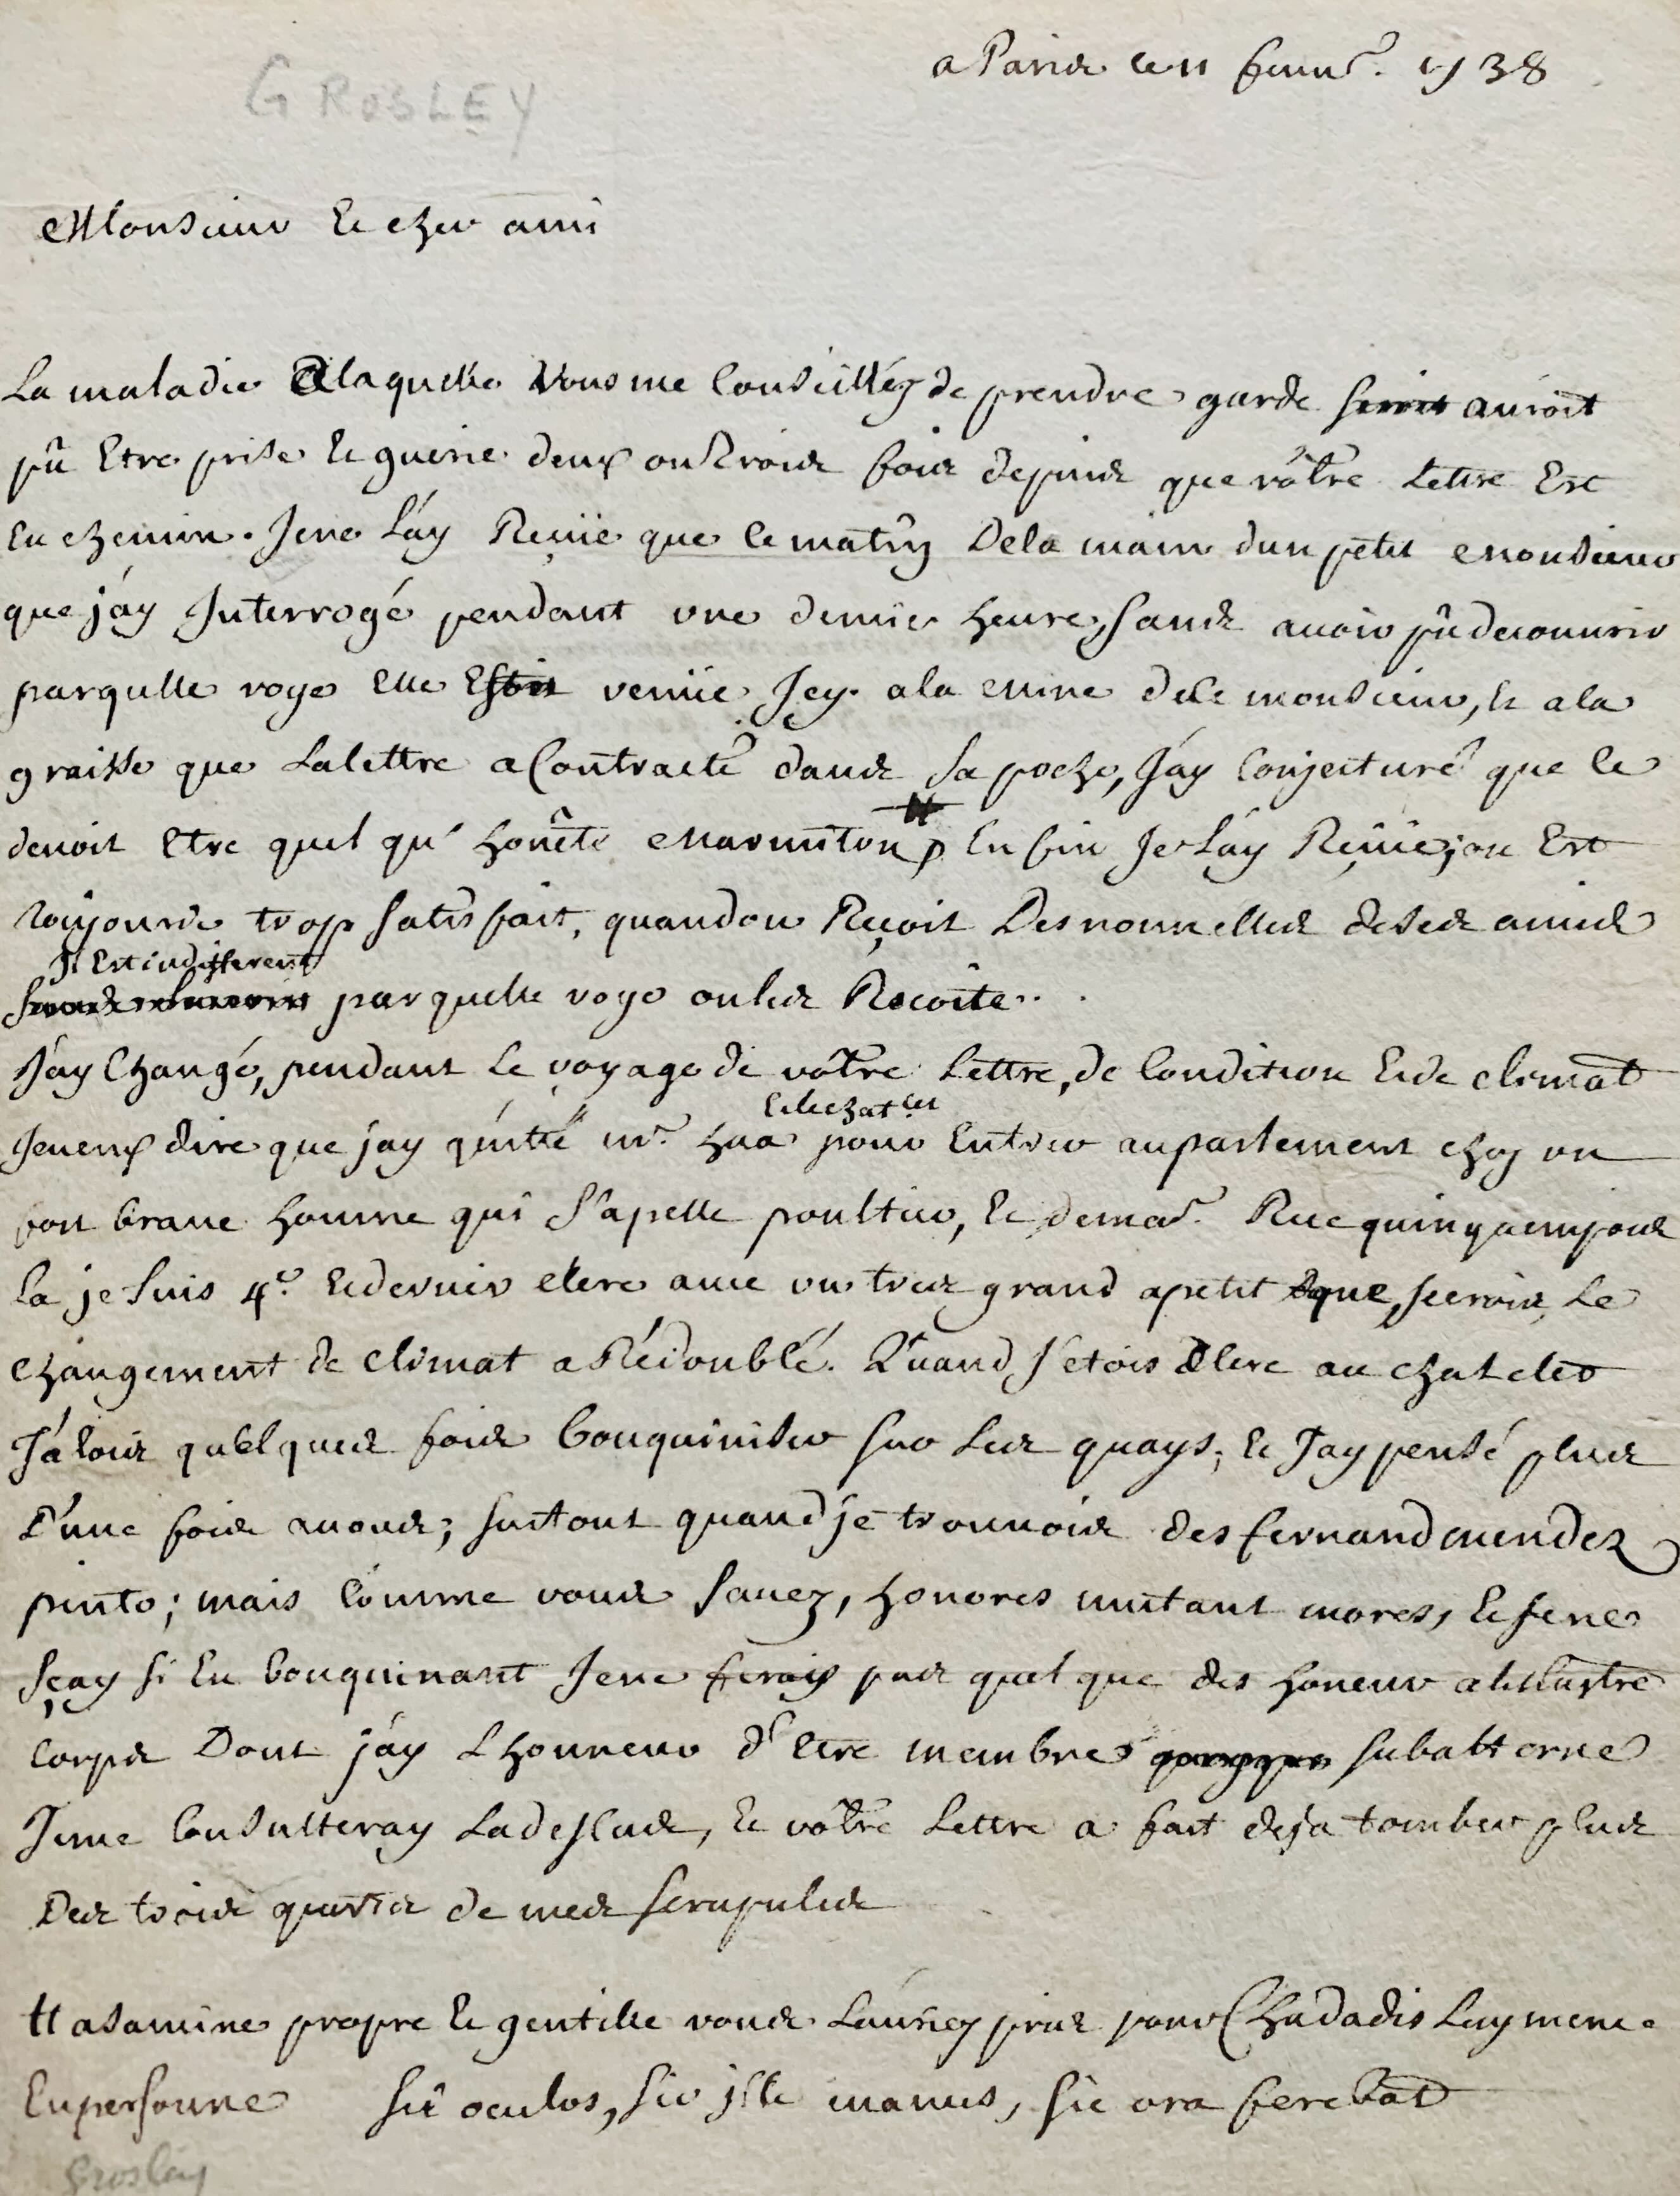 GROSLEY
a Paris ce 11 feuur. 1738
Monsieur Et cher ami
La maladie a laquelle Vous me Conseillés de prendre garde auroit
pû Etre prise Et guerie deux ou Trois fois depuis que vôtre Lettre Est
En chemin. Je ne L'ay Reçüe que ce matin De la main d'un petit Monsieur
que j'ay Interrogé pendant une demie heure, sans avoir pû decouurir
par qu'lle voye Elle Est venüe Jcy. a la Mine de Ce monsieur, Et a la
graisse que La lettre a Contracté dans Sa poche, J'ay Conjecturé que ce
devoit Etre quel qu' honête Marmiton, En fin Je L'ay Reçüe; on Est
Toujours trop satisfait, quand on Reçoit Des nouvelles de ses amis
Jl Est indifferent
par quelle voye on les Recoive.
J'ay Changé, pendant Le voyage de vôtre Lettre, de Condition Et de climat
Et le chatlet
Je veux dire que j'ay quitté mr. hua pour Entrer au parlement chez un
fort brave homme qui s'apelle poultier, Et demr. Rue quinquempoix
La je suis 4e. Et dernier clerc avec un tres grand apetit que, je crois, Le
changement de climat a Rédoublé. Quand J'etois Clerc au chatelet
J'alois quelques fois bouquiniser sur Les quays, Et J'ay pensé plus
D'une fois a vous; surtout quand je trouvois des fernand mendez
pinto; mais Comme vous savez, honores mutant mores, Et Je ne
sçay si En bouquinant Je ne ferois pas quel que des honeur a L'illustre
Corps Dont j'ay L'honneur d'Etre membre subalterne
Je me Consulteray La dessus, Et vôtre Lettre a fait deja tomber plus
Des trois quarts de mes scrupules
Et a sa mine propre Et gentille vous L'auriez pris pour Chadadis Luy meme
En personne sic oculos, sic ille manus, sic ora ferebat
Grosley